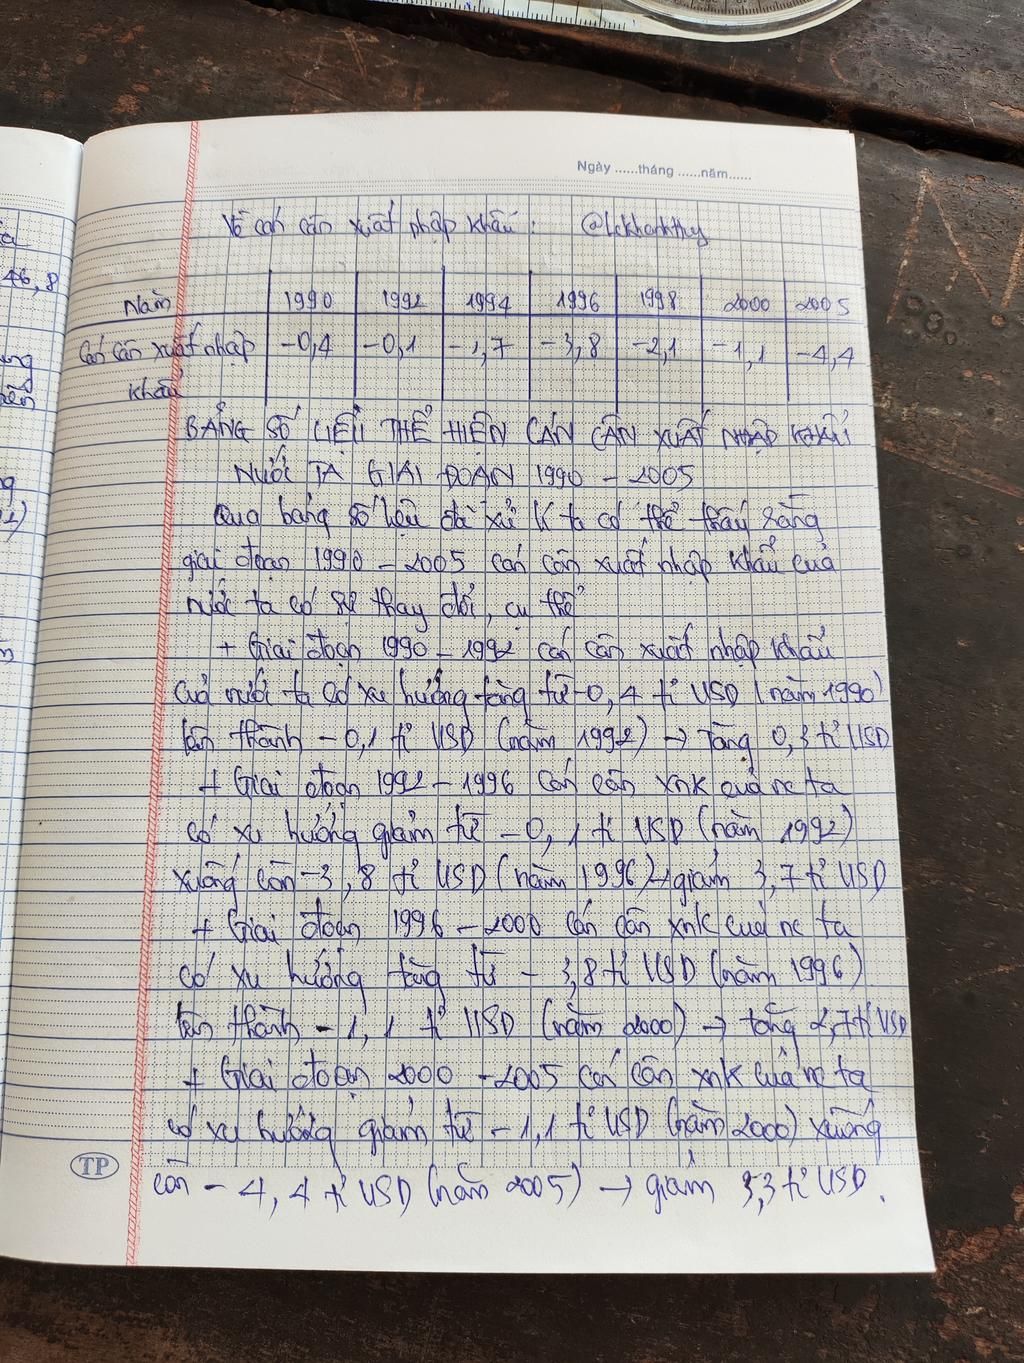 Ngày ......tháng ......năm......
Về cán cân xuất nhập khẩu: @lckhanhthy
Năm 1990 1992 1994 1996 1998 2000 2005
Cán cân xuất nhập khẩu -0,4 -0,1 -1,7 -3,8 -2,1 -1,1 -4,4
BẢNG SỐ LIỆU THỂ HIỆN CÁN CÂN XUẤT NHẬP KHẨU
NƯỚC TA GIAI ĐOẠN 1990 - 2005
Qua bảng số liệu đã xử lí ta có thể thấy rằng
giai đoạn 1990 - 2005 cán cân xuất nhập khẩu của
nước ta có sự thay đổi, cụ thể
+ Giai đoạn 1990 - 1992 cán cân xuất nhập khẩu
của nước ta có xu hướng tăng từ -0,4 tỉ USD (năm 1990)
lên thành -0,1 tỉ USD (năm 1992) → Tăng 0,3 tỉ USD
+ Giai đoạn 1992 - 1996 cán cân xnk của nc ta
có xu hướng giảm từ -0,1 tỉ USD (năm 1992)
xuống còn -3,8 tỉ USD (năm 1996) → giảm 3,7 tỉ USD
+ Giai đoạn 1996 - 2000 cán cân xnk của nc ta
có xu hướng tăng từ -3,8 tỉ USD (năm 1996)
lên thành -1,1 tỉ USD (năm 2000) → tăng 2,7 tỉ USD
+ Giai đoạn 2000 - 2005 cán cân xnk của nc ta
có xu hướng giảm từ -1,1 tỉ USD (năm 2000) xuống
còn -4,4 tỉ USD (năm 2005) → giảm 3,3 tỉ USD.
TP
46,8